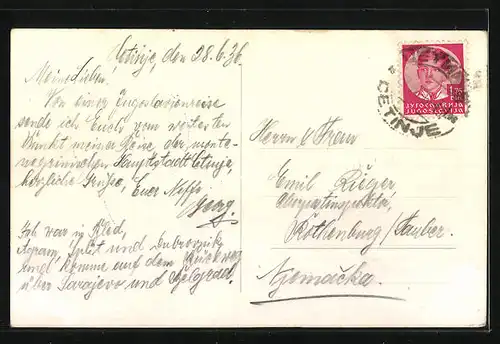 Cetinje, den 28.6.36
Meine Lieben.
Von einer Jugoslavienreise
sende ich Euch vom weitesten
Punkt meiner Reise der monte-
negrinischen Hauptstadt Cetinje,
herzliche Grüße, Euer Neffe
Georg.
Ich war in Bled,
Agram, Split und Dubrovnik
und komme auf dem Rückweg
über Sarajevo und Belgrad.
ЦЕТИЊЕ
1.75
ЈУГОСЛАВИЈА
JUGOSLAVIJA
CETINJE
Herrn & Frau
Emil Rieger
Rothenburg/Tauber.
Njemačka.